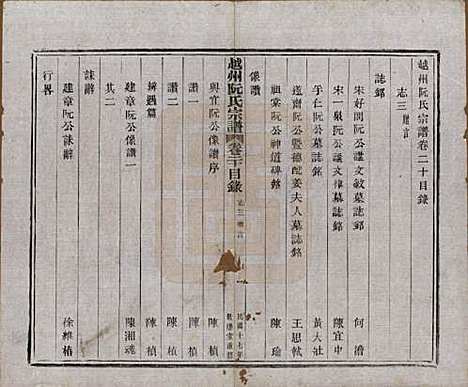 越州阮氏宗譜卷二十目錄
志三 贈言
誌銘
宋好問阮公謚文敏墓誌銘 何澹
宋一泉阮公謚文樟墓誌銘 陳宜中
子仁阮公墓誌銘 黃大社
遁齋阮公暨德配姜夫人墓誌銘 王思軾
祖棠阮公神道碑銘 陳瑜
像讚
越州阮氏宗譜 卷二十目錄 志三 贈言
民國十七年
敦倫堂重修
與宜阮公像讚序 陳楨
讚一 陳楨
讚二 陳楨
辨遇篇 陳楨
建章阮公像讚一 陳湘魂
其二
誄辭
建章阮公誄辭 徐維椿
行畧